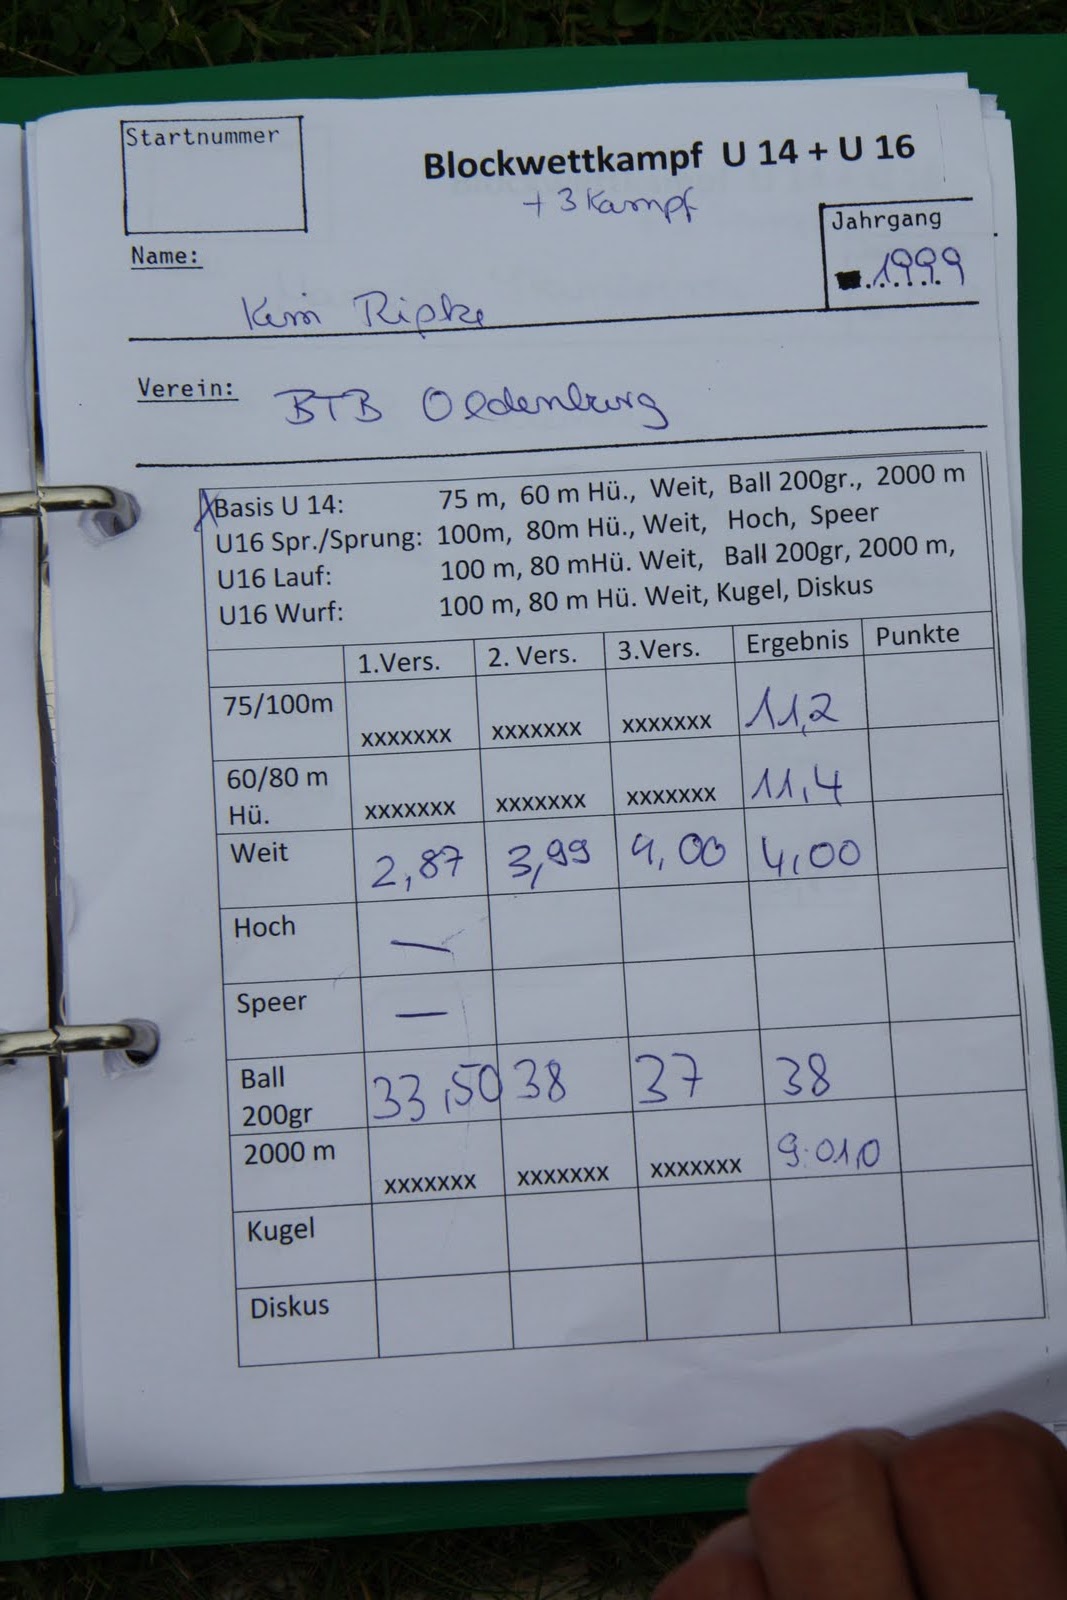 Startnummer
Blockwettkampf U 14 + U 16
+ 3 Kampf
Jahrgang
1999
Name:
Kim Ripke
Verein: BTB Oldenburg
X Basis U 14: 75 m, 60 m Hü., Weit, Ball 200gr., 2000 m
U16 Spr./Sprung: 100m, 80m Hü., Weit, Hoch, Speer
U16 Lauf: 100 m, 80 mHü. Weit, Ball 200gr, 2000 m,
U16 Wurf: 100 m, 80 m Hü. Weit, Kugel, Diskus
1.Vers. 2. Vers. 3.Vers. Ergebnis Punkte
75/100m xxxxxxx xxxxxxx xxxxxxx 11,2
60/80 m
Hü. xxxxxxx xxxxxxx xxxxxxx 11,4
Weit 2,87 3,99 4,00 4,00
Hoch —
Speer —
Ball
200gr 33,50 38 37 38
2000 m xxxxxxx xxxxxxx xxxxxxx 9:01,0
Kugel
Diskus